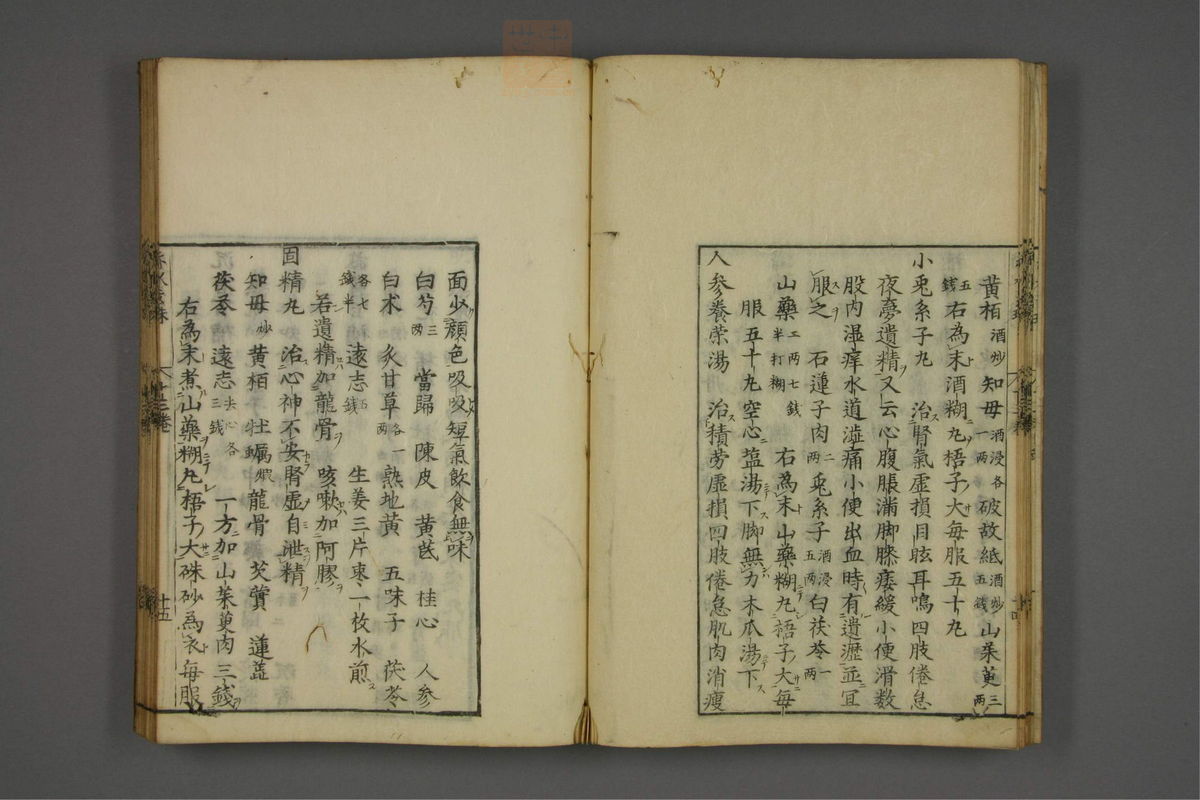 黄栢酒炒知母酒浸各一两破故紙酒炒五錢山茱萸三两
五錢右為末酒糊丸梧子大毎服五十丸
小兎糸子丸 治腎氣虚損目眩耳鳴四肢倦怠
夜夢遺精又云心腹脹滿脚膝痿緩小便滑数
股内湿痒水道澁痛小便出血時有遺瀝並宜
服之 石蓮子肉二两兎糸子酒浸五两白茯苓一两
山藥二两七錢半打糊 右為末山藥糊丸梧子大毎
服五十丸空心塩湯下脚無力木瓜湯下
人参養荣湯 治積劳虚損四肢倦怠肌肉消瘦
面少顔色吸吸短氣飲食無味
白芍三两當歸 陳皮 黄芪 桂心 人参
白朮 炙甘草各一两熟地黄 五味子 茯苓
各七錢半遠志五錢 生姜三片枣一枚水煎
若遺精加龍骨 咳嗽加阿膠
固精丸 治心神不安腎虚自泄精
知母炒黄栢 牡蠣煆龍骨 芡實 蓮蕊
茯苓 遠志去心各三錢 一方加山茱萸肉三錢
右為末煮山藥糊丸梧子大硃砂為衣毎服